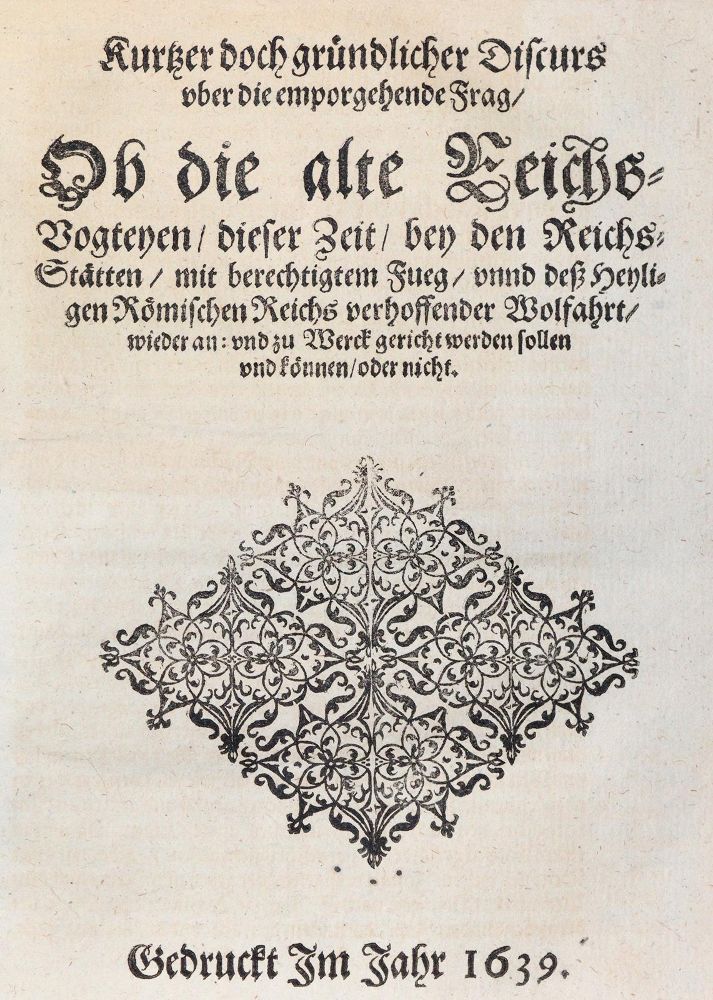 Kurtzer doch gründlicher Discurs
vber die emporgehende Frag/
Ob die alte Reichs-
Vogteyen/ dieser Zeit/ bey den Reichs-
Stätten/ mit berechtigtem Fueg/ vnnd deß Heyli-
gen Römischen Reichs verhoffender Wolfahrt/
wieder an: vnd zu Werck gericht werden sollen
vnd können/oder nicht.
Gedruckt Im Jahr 1639.